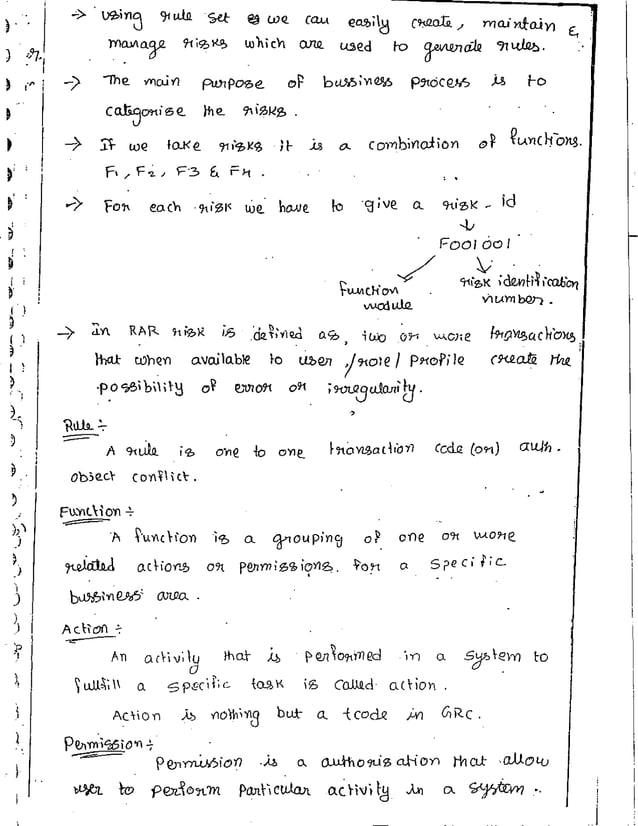 → using rule set we can easily create, maintain &
manage risks which are used to generate rules.
→ The main purpose of bussiness process is to
categorise the risks.
→ If we take risks it is a combination of functions.
F1, F2, F3 & F4.
→ For each risk we have to give a risk-id
↓
F001001
Function module
risk identification number.
→ In RAR risk is defined as, two or more transactions
that when available to user /role/ profile create the
possibility of error or irregularity.
Rule :-
A rule is one to one transaction code (or) auth.
object conflict.
Function :-
A function is a grouping of one or more
related actions or permissions. for a specific
bussiness area.
Action :-
An activity that is performed in a system to
fullfill a specific task is called action.
Action is nothing but a tcode in GRC.
Permission :-
Permission is a authorisation that allow
user to perform particular activity in a system.